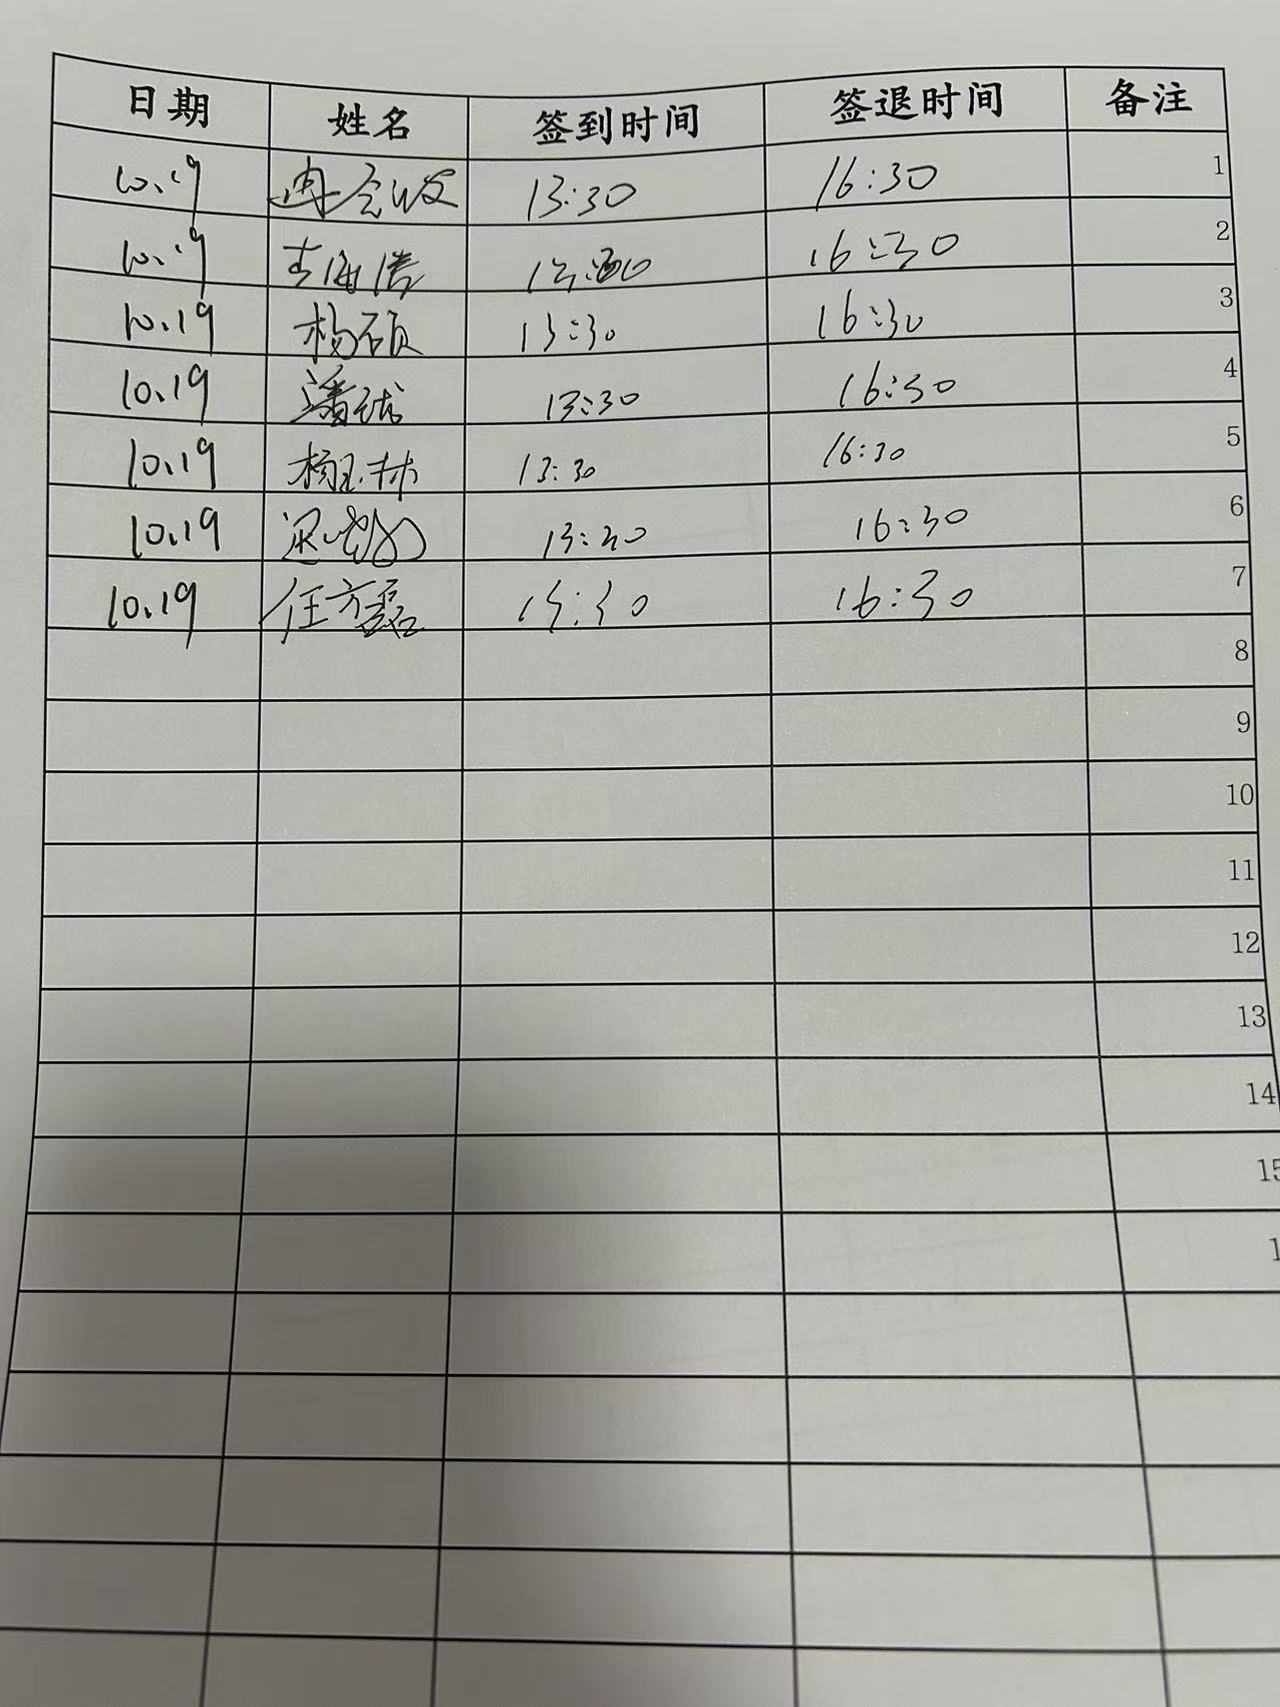 日期 姓名 签到时间 签退时间 备注
10.19 冉会波 13:30 16:30 1
10.19 李海涛 16:30 2
10.19 杨硕 13:30 16:30 3
10.19 潘 13:30 16:30 4
10.19 杨玉林 13:30 16:30 5
10.19 13:30 16:30 6
10.19 任方磊 13:30 16:30 7
8
9
10
11
12
13
14
15
1